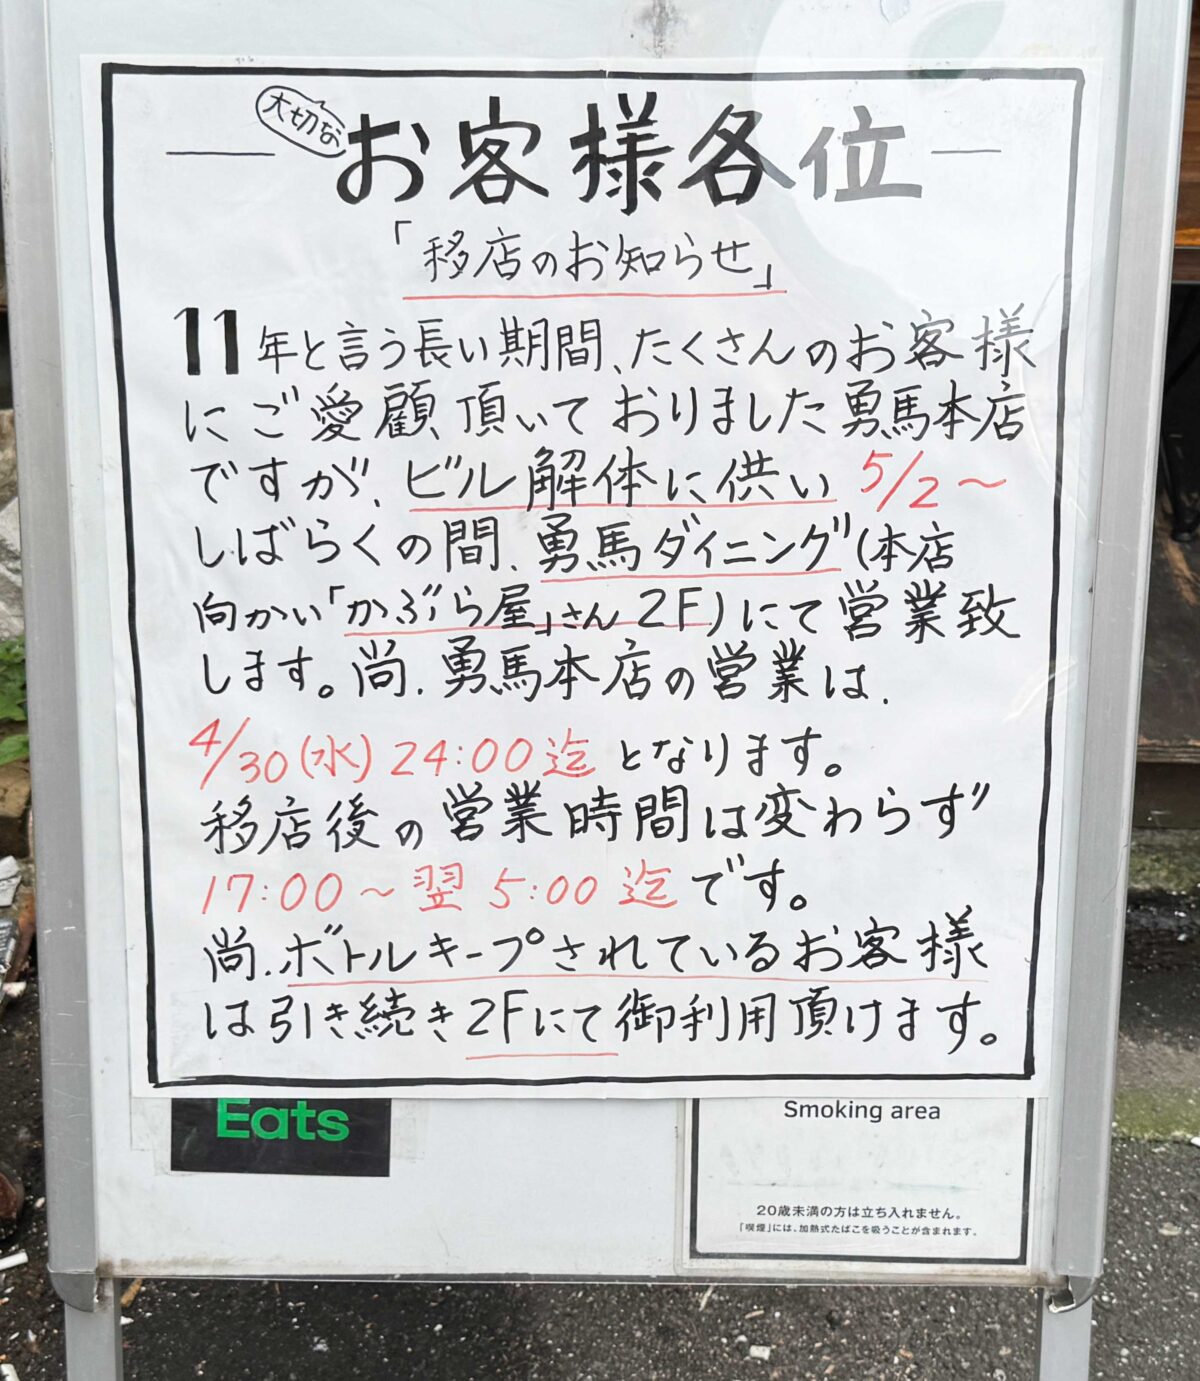 大切な
お客様各位
「移店のお知らせ」
11年と言う長い期間、たくさんのお客様
にご愛顧頂いておりました勇馬本店
ですが、ビル解体に供い 5/2～
しばらくの間、勇馬ダイニング(本店
向かい「かぶら屋」さん2F)にて営業致
します。尚、勇馬本店の営業は、
4/30(水)24:00迄となります。
移店後の営業時間は変わらず
17:00～翌5:00迄です。
尚、ボトルキープされているお客様
は引き続き2Fにて御利用頂けます。
Eats
Smoking area
20歳未満の方は立ち入れません。
「喫煙」には、加熱式たばこを吸うことが含まれます。